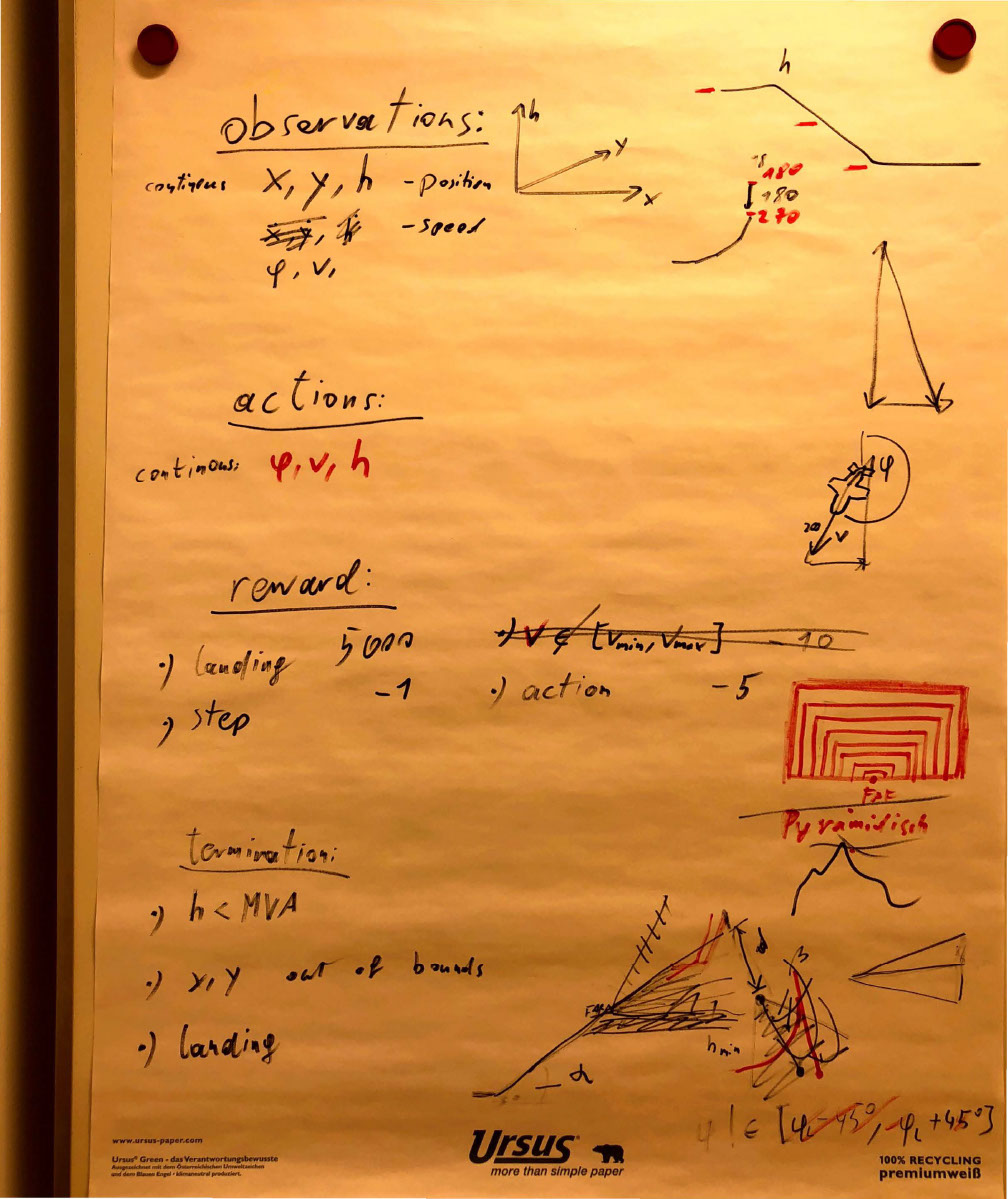 observations:
h
y
x
continous x, y, h - position
- speed
φ, v,
h
180
180
270
actions:
continous: φ, v, h
φ
v
reward:
·) landing 5000
·) v ∉ [vmin, vmax] - 10
·) step -1
·) action -5
FAF
Pyramidisch
termination:
·) h < MVA
·) x, y out of bounds
·) landing
FAF
d
hmin
α
φ ! ∈ [φL - 45°, φL + 45°]
www.ursus-paper.com
Ursus® Green - das Verantwortungsbewusste
Ausgezeichnet mit dem Österreichischen Umweltzeichen
und dem Blauen Engel • klimaneutral produziert.
Ursus®
more than simple paper
100% RECYCLING
premiumweiß